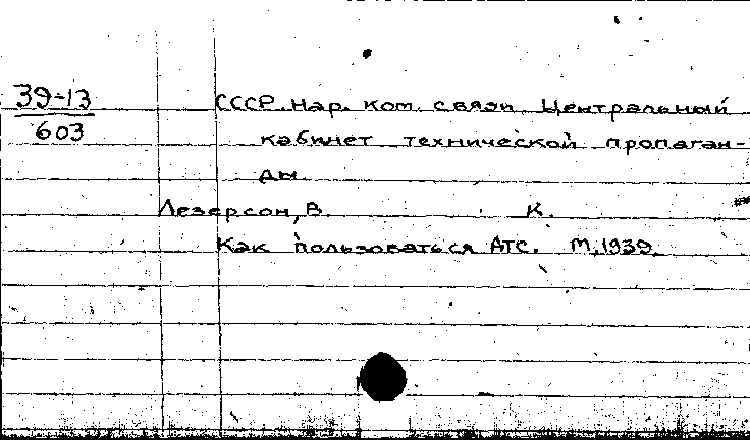 39-13
603
СССР. Нар. ком. связи. Центральный
кабинет технической пропаган-
ды.
Лезерсон, В. К.
Как пользоваться АТС. М., 1939.